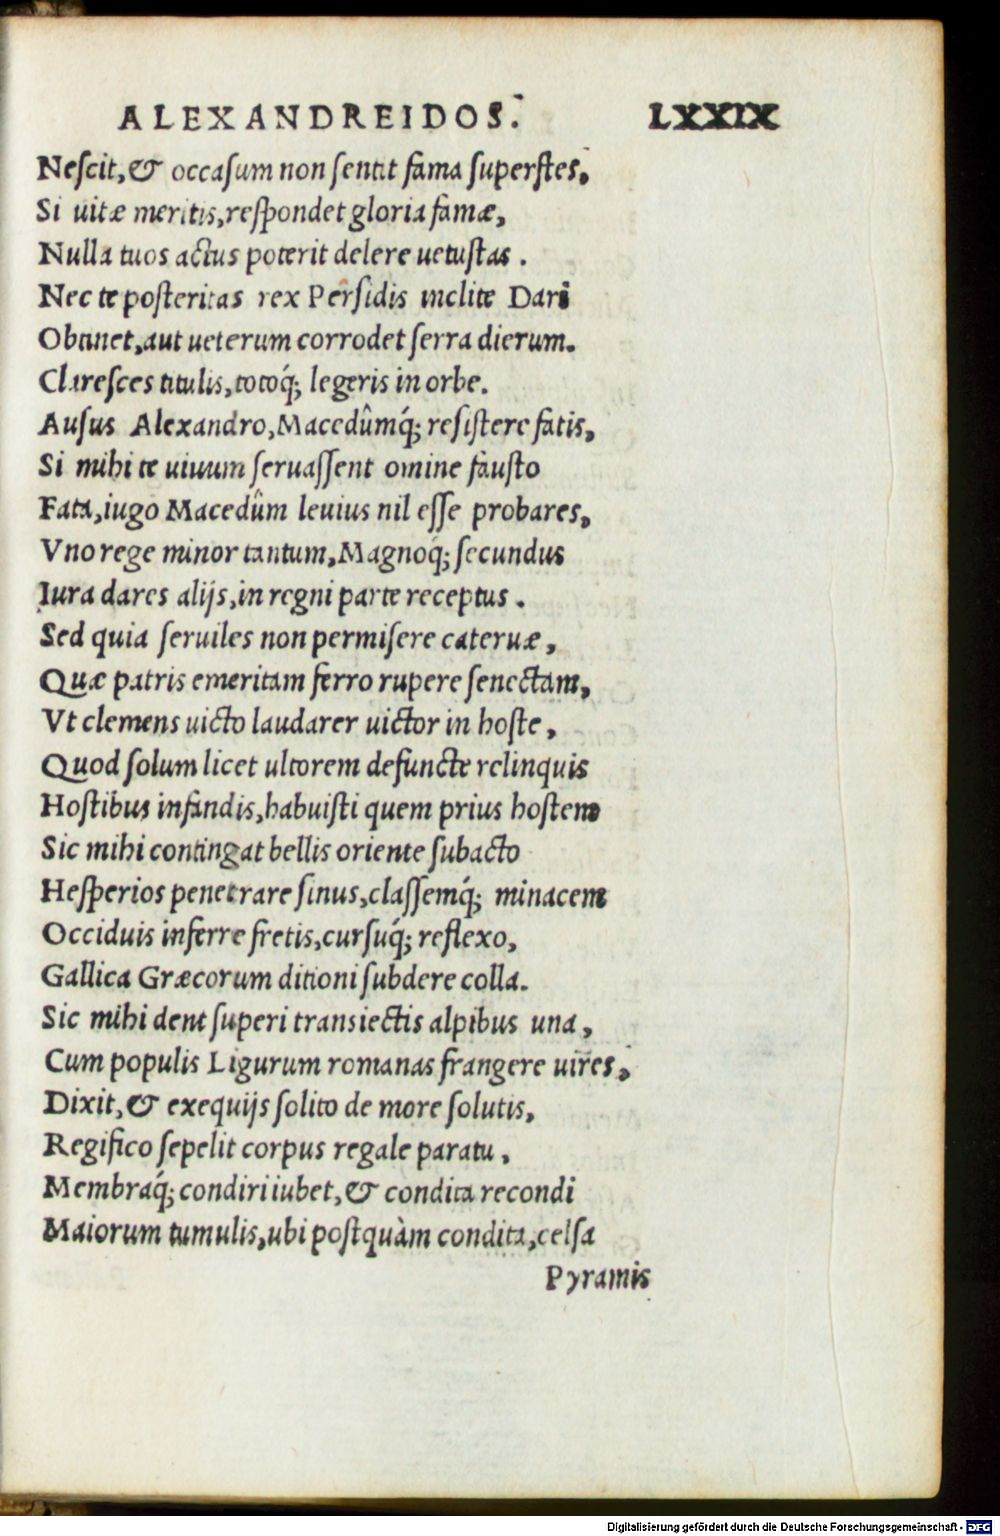 ALEXANDREIDOS. LXXIX
Neſcit, & occaſum non ſentit fama ſuperſtes,
Si uitæ meritis, reſpondet gloria famæ,
Nulla tuos actus poterit delere uetuſtas.
Nec te poſteritas rex Perſidis inclite Dari
Obtinet, aut ueterum corrodet ſerra dierum.
Clareſces titulis, totoq́; legeris in orbe.
Auſus Alexandro, Macedûmq́; reſiſtere fatis,
Si mihi te uiuum ſeruaſſent omine fauſto
Fata, iugo Macedûm leuius nil eſſe probares,
Vno rege minor tantum, Magnoq́; ſecundus
Iura dares alijs, in regni parte receptus.
Sed quia ſeruiles non permiſere cateruæ,
Quæ patris emeritam ferro rupere ſenectam,
Vt clemens uicto laudarer uictor in hoſte,
Quod ſolum licet ultorem defuncte relinquis
Hoſtibus infandis, habuiſti quem prius hoſtem
Sic mihi contingat bellis oriente ſubacto
Heſperios penetrare ſinus, claſſemq́; minacem
Occiduis inferre fretis, curſuq́; reflexo,
Gallica Græcorum ditioni ſubdere colla.
Sic mihi dent ſuperi transiectis alpibus una,
Cum populis Ligurum romanas frangere uires,
Dixit, & exequijs ſolito de more ſolutis,
Regifico ſepelit corpus regale paratu,
Membraq́; condiri iubet, & condita recondi
Maiorum tumulis, ubi poſtquàm condita, celſa
Pyramis
Digitalisierung gefördert durch die Deutsche Forschungsgemeinschaft - DFG